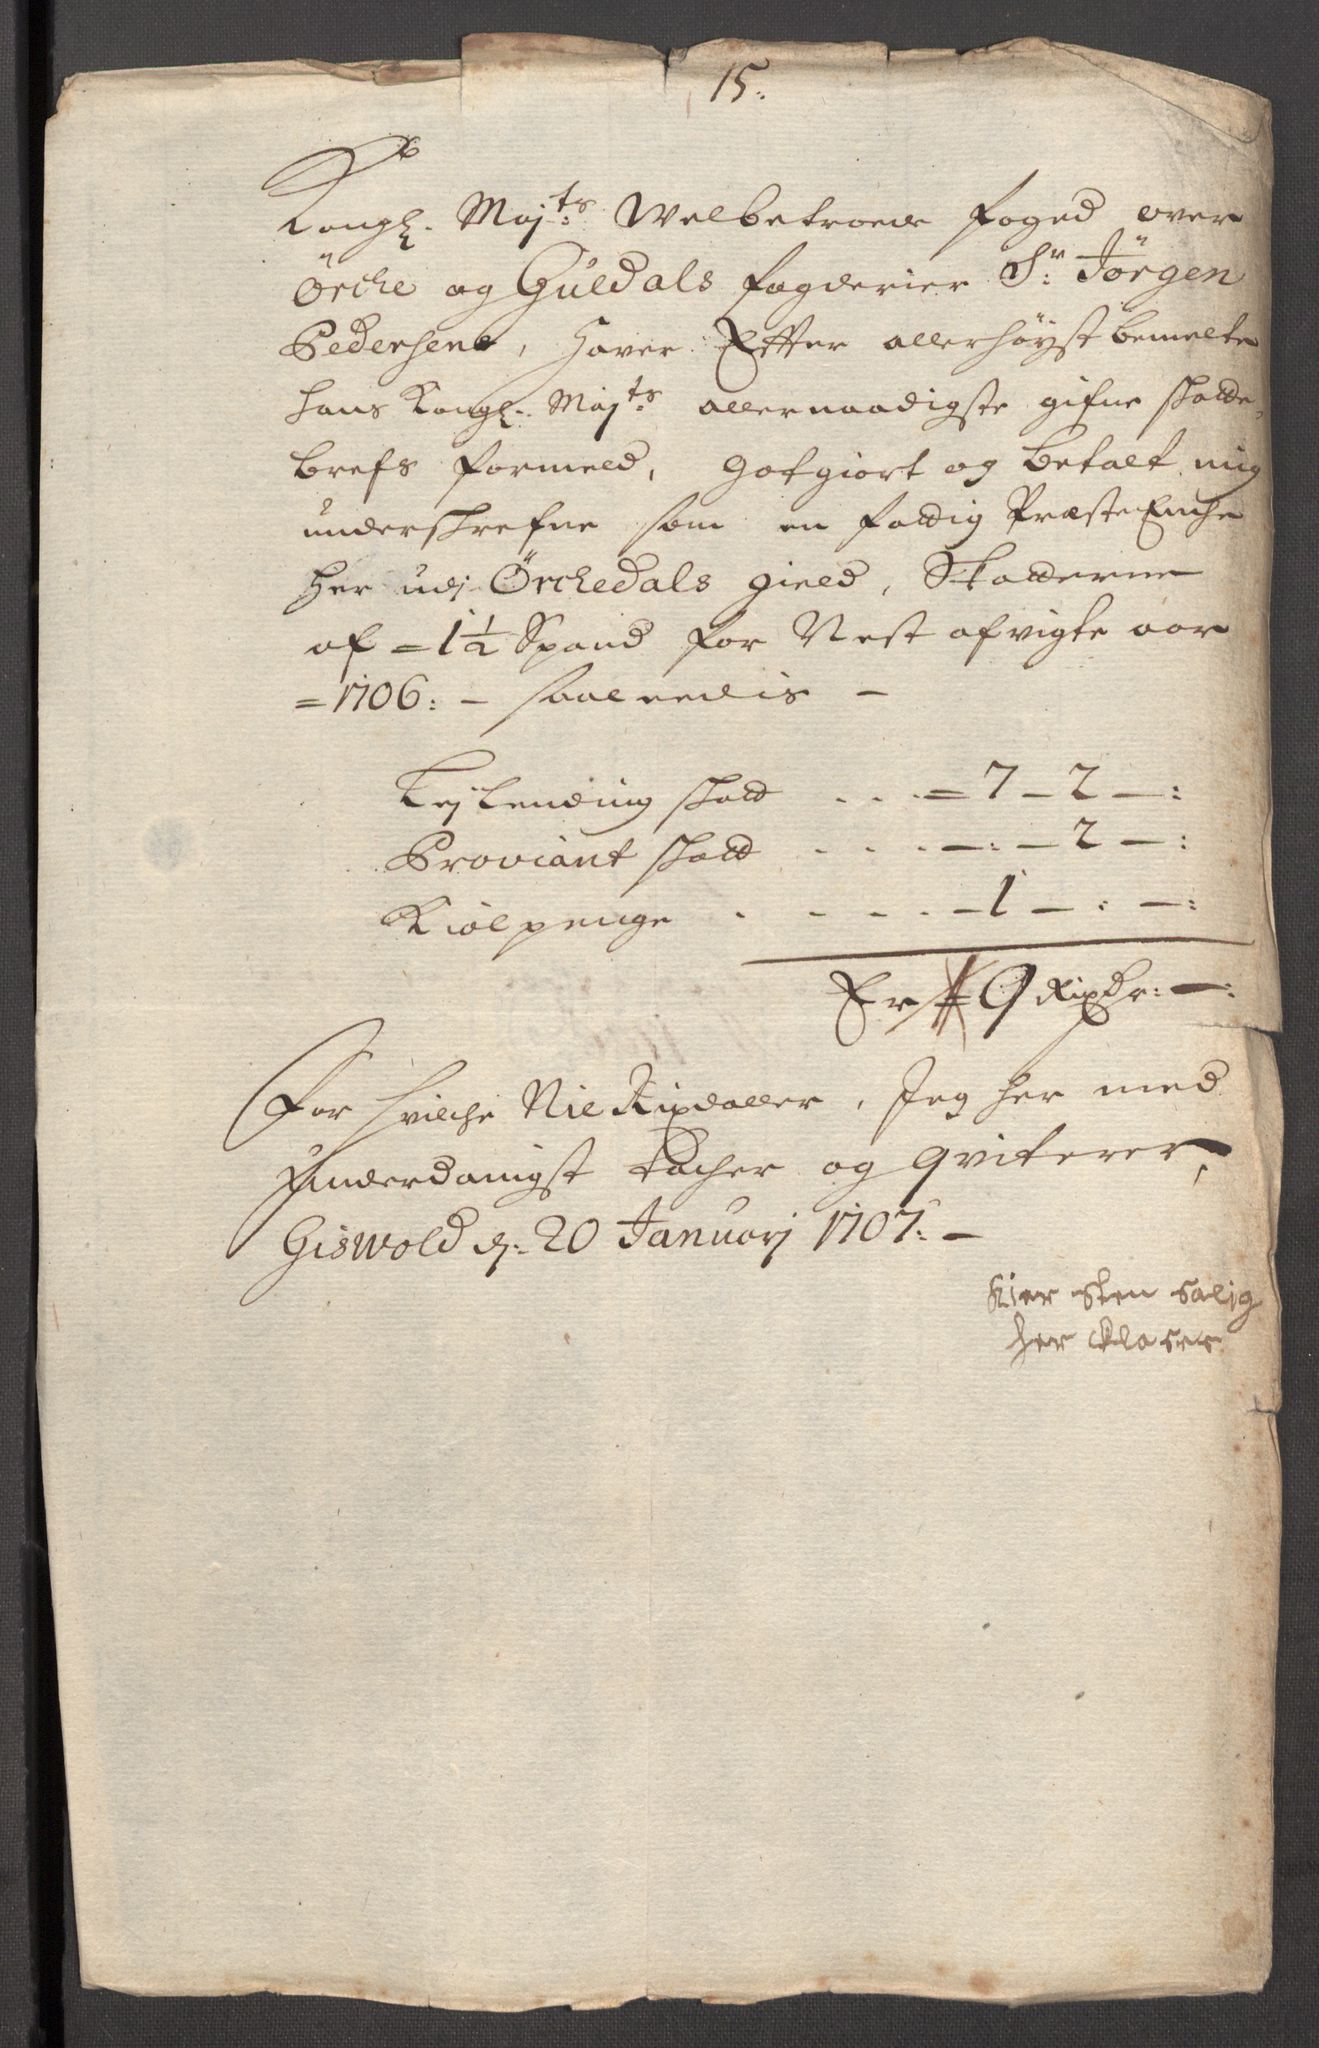 15.
Kongl. Majts: Welbetroede foged over
Örche og Guldals fogderier Sr: Jörgen
Pedersen, Haver Efter allerhöyst bemelte
hans Kongl. Majts: allernaadigste gifne skatte,
brefs formeld, Gotgiort og betalt mig
underskrefne som en fattig Præste Enche
her udj Örchedals gield, Skatterne
af = 1½ Spand for Nest afvigte aar
= 1706: - saaledis -
Lejlending skatt . . . = 7 - 2 - :
Proviant skatt . . . . - : - 2 - :
Kiölpenge . . . . . - 1 - : - :
Er # 9 Rixdr: - :
For hvilche Nie Rixdaller, Jeg her med
Underdanigst tacher og qviterer,
Giswold d: 20 Januarj 1707: -
Kier sten salig
her Clases